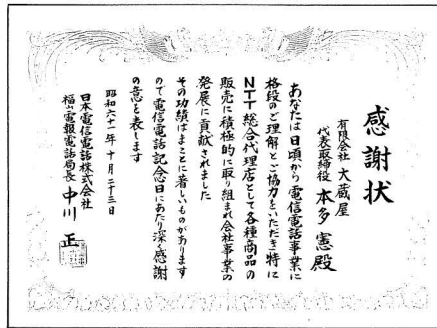 感謝状
有限会社 大蔵屋
代表取締役 本多憲殿
あなたは日頃から電信電話事業に
格段のご理解とご協力をいただき特に
NTT総合代理店として各種商品の
販売に積極的に取り組まれ会社事業の
発展に貢献されました
その功績はまことに著しいものがあります
ので電信電話記念日にあたり深く感謝
の意を表します
昭和六十一年十月二十三日
日本電信電話株式会社
福山電報電話局長 中川正